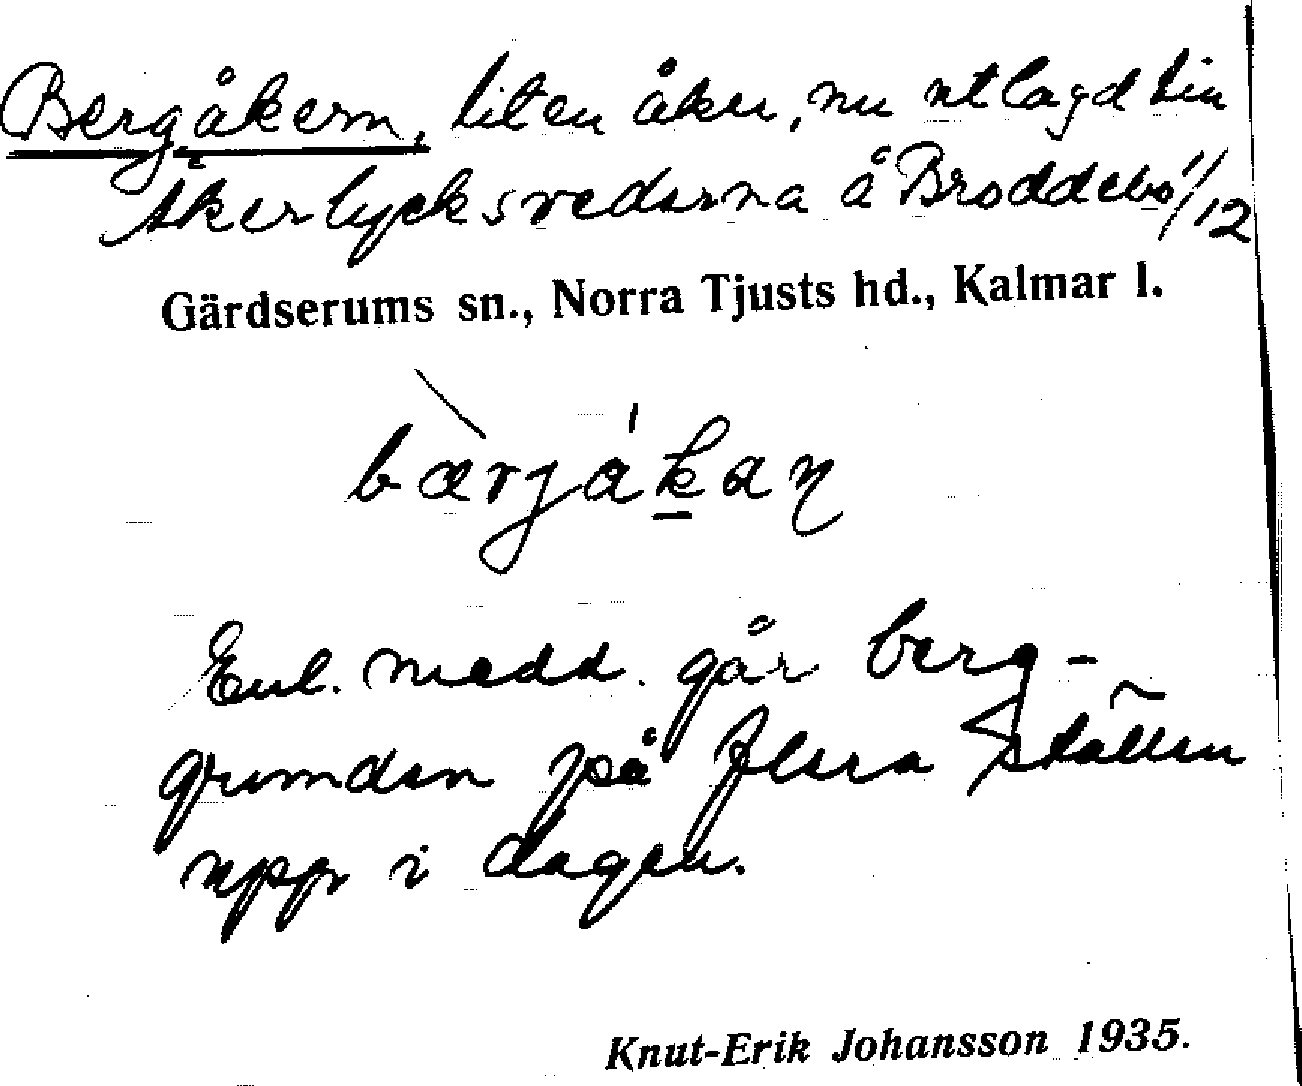 Bergåkern, liten åker, nu utlagd till
Åkerlycksvedarna å Broddebo 1/12
Gärdserums sn., Norra Tjusts hd., Kalmar l.
bærjåkaɳ
Enl. medd. går berg-
grunden på flera ställen
upp i dagen.
Knut-Erik Johansson 1935.